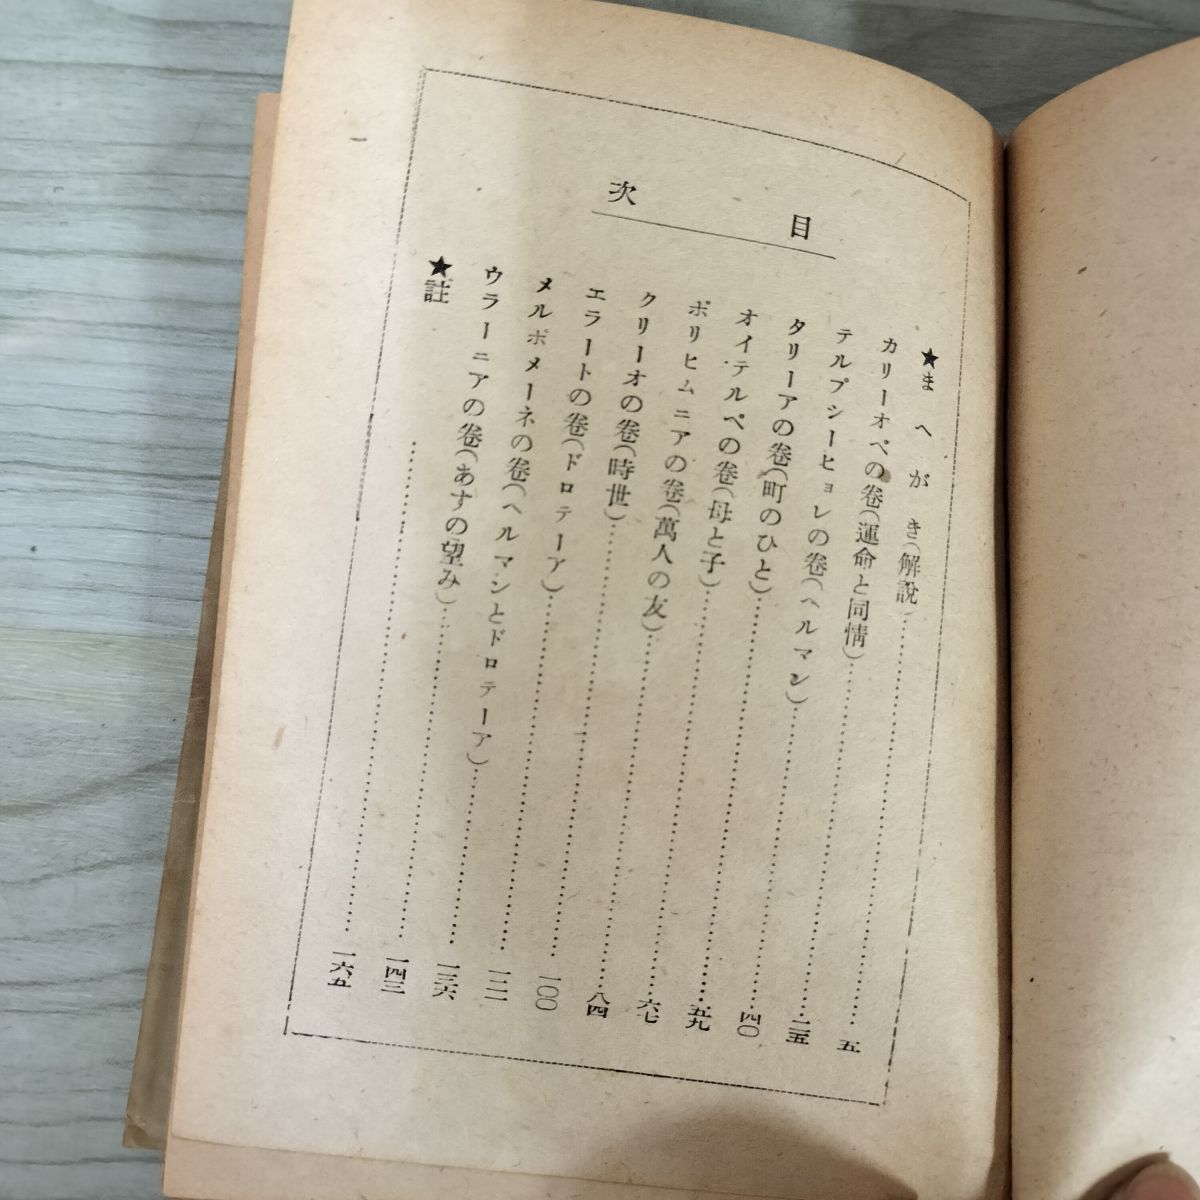 目次
★まへがき(解説)……五
カリーオペの巻(運命と同情)……二五
テルプシーヒョレの巻(ヘルマン)……四〇
タリーアの巻(町のひと)……五九
オイテルペの巻(母と子)……六七
ポリヒムニアの巻(萬人の友)……八四
クリーオの巻(時世)……一〇〇
エラートの巻(ドロテーア)……
メルポメーネの巻(ヘルマンとドロテーア)……一三六
ウラーニアの巻(あすの望み)……一四三
★註……一六五
一